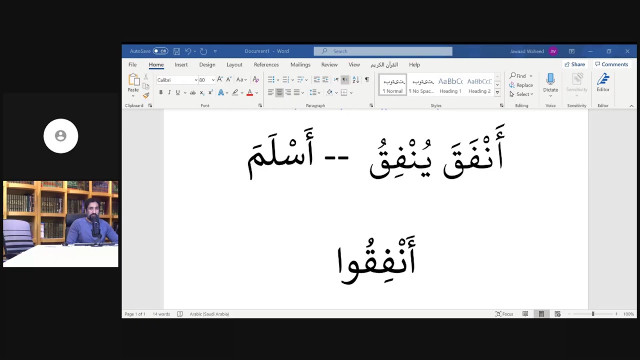 AutoSave Off Document1 - Word Search
File Home Insert Draw Design Layout References Mailings Review View Help القرآن الكريم Share Comments
Paste Calibri 80 Normal No Spac... Heading 1 Heading 2 Find Replace Select Dictate Sensitivity Editor
Clipboard Font Paragraph Styles Editing Voice Sensitivity Editor
أَنْفَقَ يُنْفِقُ -- أَسْلَمَ
أَنْفِقُوا
Page 1 of 1 14 words Arabic (Saudi Arabia) Focus 100%